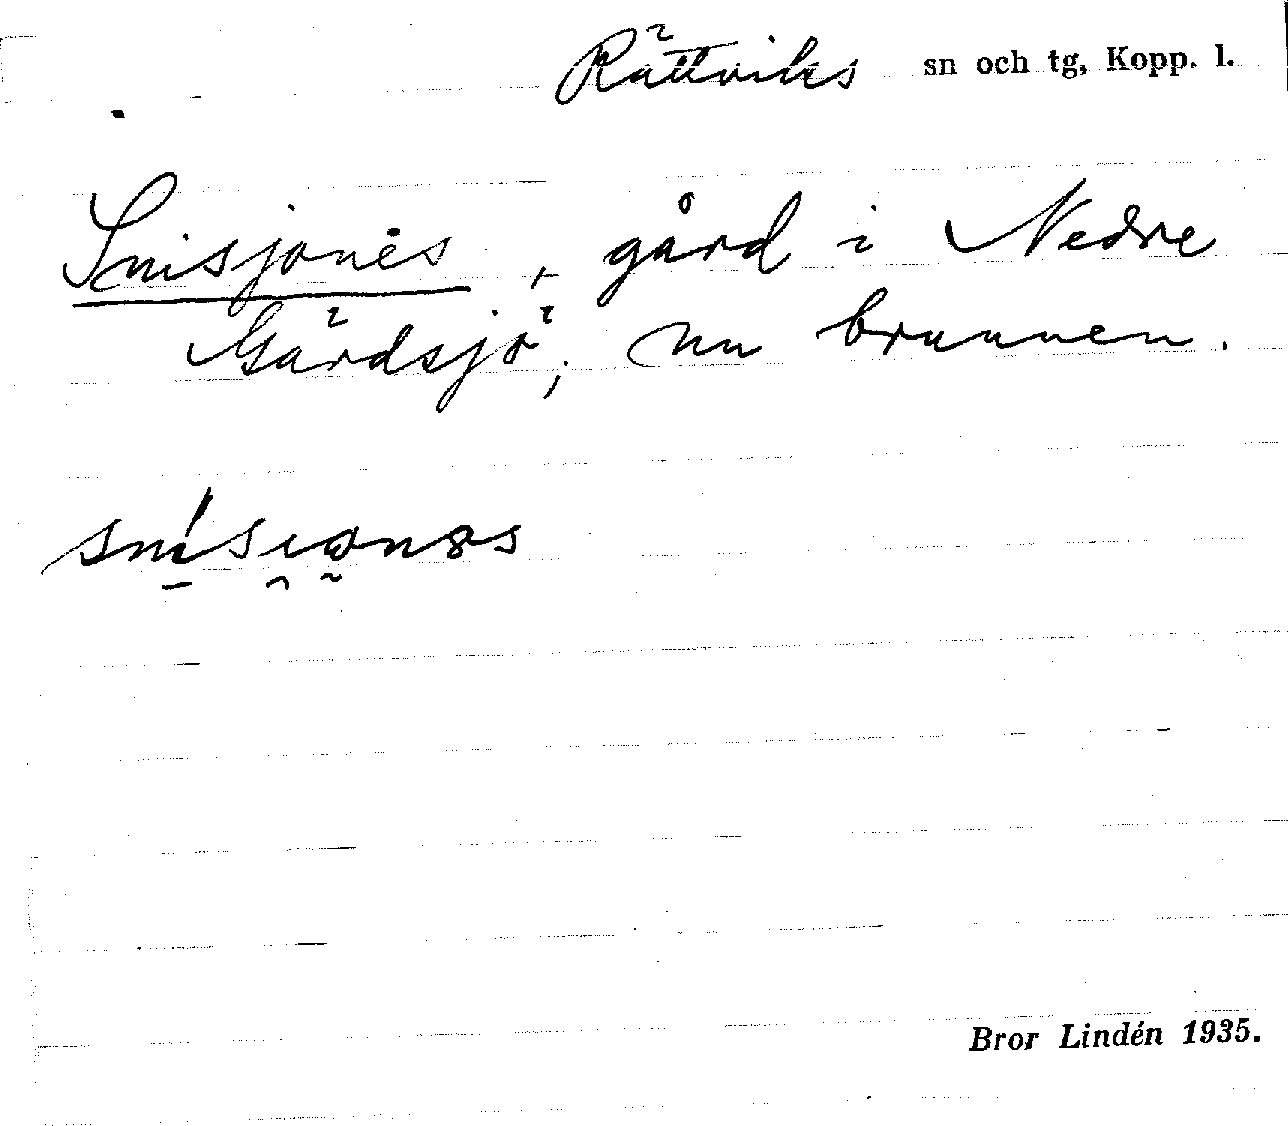 Rättviks sn och tg, Kopp. l.
Snisjonès, gård i Nedre
Gärdsjö, nu brunnen.
Bror Lindén 1935.